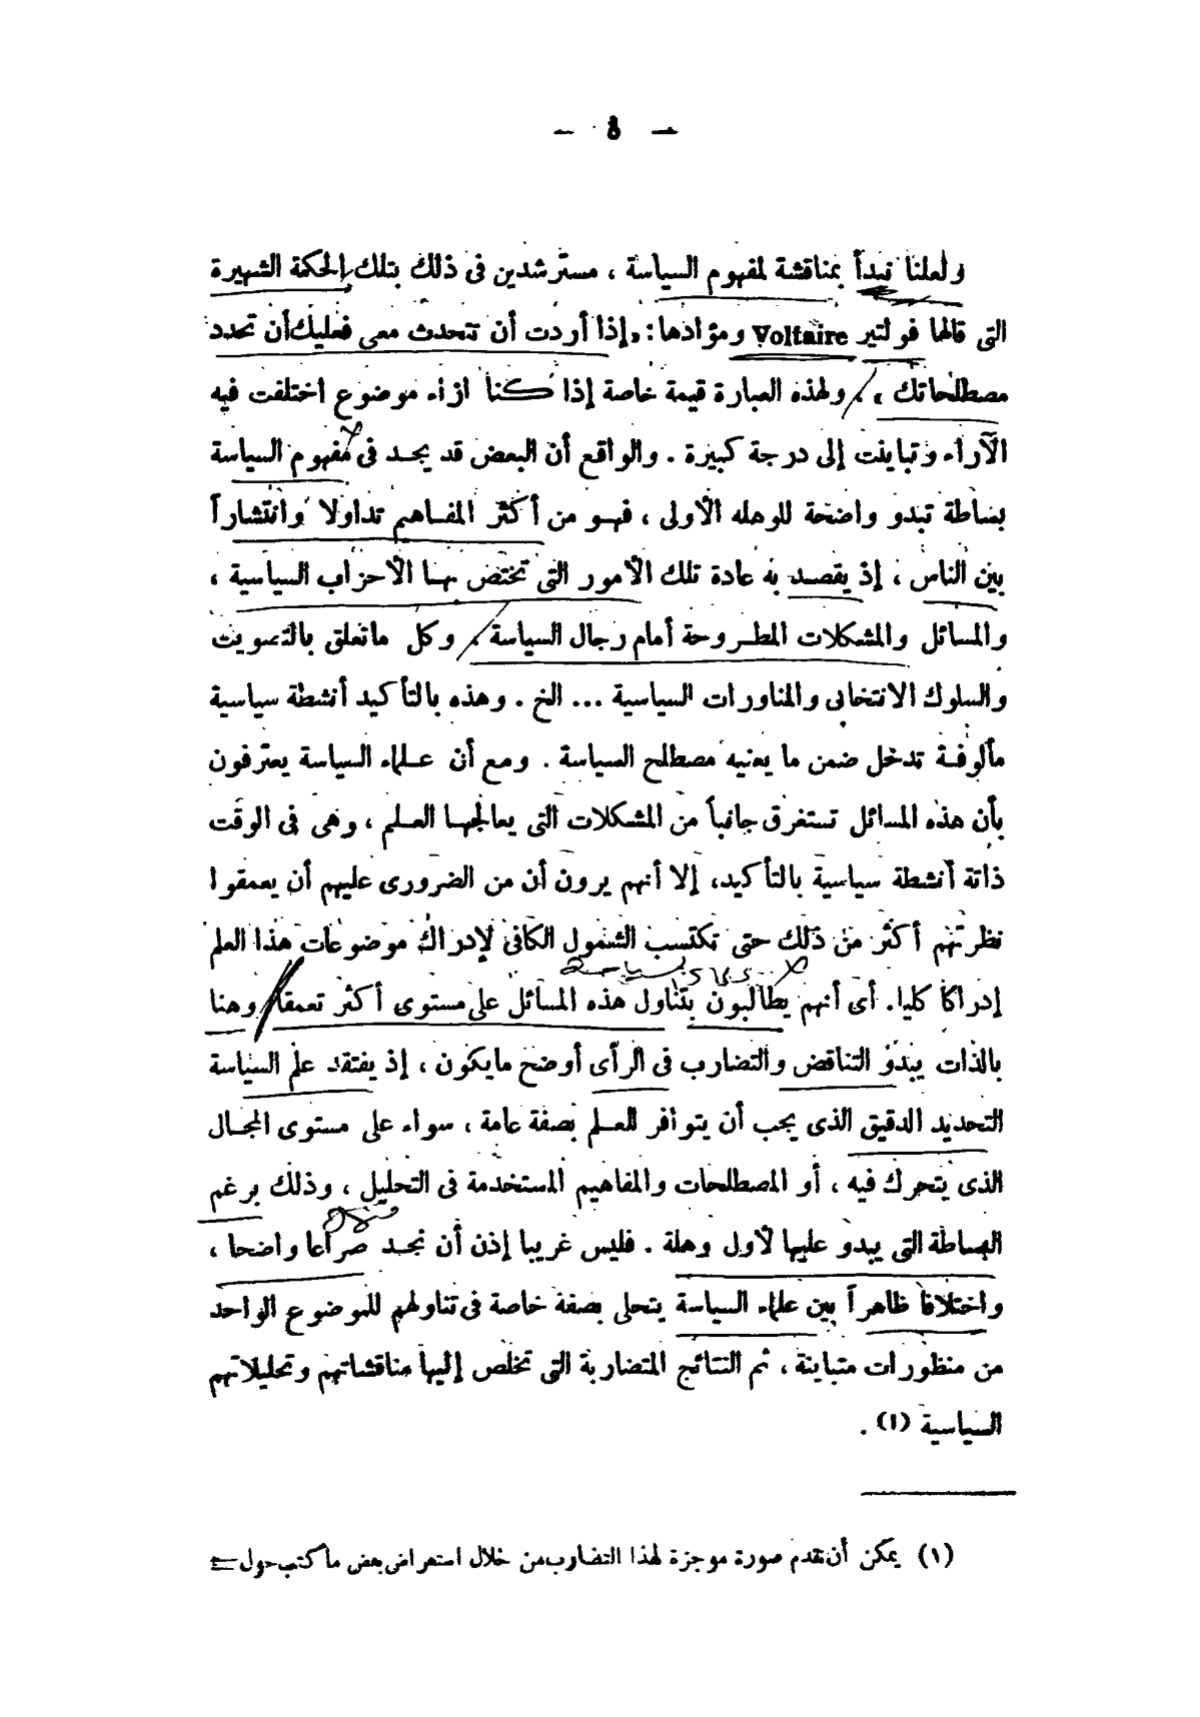 — ٥ —
ولعلنا نبدأ بمناقشة لمفهوم السياسة ، مسترشدين فى ذلك بتلك الحكمة الشهيرة
التى قالها فولتير Voltaire ومؤداها: «إذا أردت أن تتحدث معى فعليك أن تحدد
مصطلحاتك » ، ولهذه العبارة قيمة خاصة إذا كنا ازاء موضوع اختلفت فيه
الآراء وتباينت إلى درجة كبيرة . والواقع أن البعض قد يجد فى مفهوم السياسة
بساطة تبدو واضحة للوهله الأولى ، فهو من أكثر المفاهيم تداولا وانتشاراً
بين الناس ، إذ يقصد به عادة تلك الأمور التى تختص بها الأحزاب السياسية ،
والمسائل والمشكلات المطروحة أمام رجال السياسة ، وكل ماتعلق بالتصويت
والسلوك الانتخابى والمناورات السياسية ... الخ . وهذه بالتأكيد أنشطة سياسية
مألوفة تدخل ضمن ما يعنيه مصطلح السياسة . ومع أن علماء السياسة يعترفون
بأن هذه المسائل تستغرق جانباً من المشكلات التى يعالجها العلم ، وهى فى الوقت
ذاتة أنشطة سياسية بالتأكيد، إلا أنهم يرون أن من الضرورى عليهم أن يعمقوا
نظرتهم أكثر من ذلك حتى تكتسب الشمول الكافى لإدراك موضوعات هذا العلم
إدراكا كليا. أى أنهم يطالبون بتناول هذه المسائل على مستوى أكثر تعمقا، وهنا
بالذات يبدو التناقض والتضارب فى الرأى أوضح مايكون ، إذ يفتقد علم السياسة
التحديد الدقيق الذى يجب أن يتوافر للعلم بصفة عامة ، سواء على مستوى المجال
الذى يتحرك فيه ، أو المصطلحات والمفاهيم المستخدمة فى التحليل ، وذلك برغم
البساطة التى يبدو عليها لأول وهلة . فليس غريبا إذن أن نجد صراعا واضحا ،
واختلافا ظاهراً بين علماء السياسة يتجلى بصفة خاصة فى تناولهم للموضوع الواحد
من منظورات متباينة ، ثم النتائج المتضاربة التى تخلص إليها مناقشاتهم وتحليلاتهم
السياسية (١) .
(١) يمكن أن نقدم صورة موجزة لهذا التضارب من خلال استعراض بعض ما كتب حول =